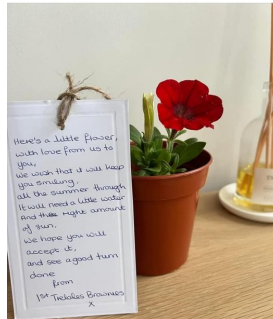 Here's a little flower,
with love from us to
you,
We wish that it will keep
you smiling,
all the summer through
It will need a little water
And the right amount
of sun,
we hope you will
accept it,
and see a good turn
done
from
1st Trelales Brownies
x